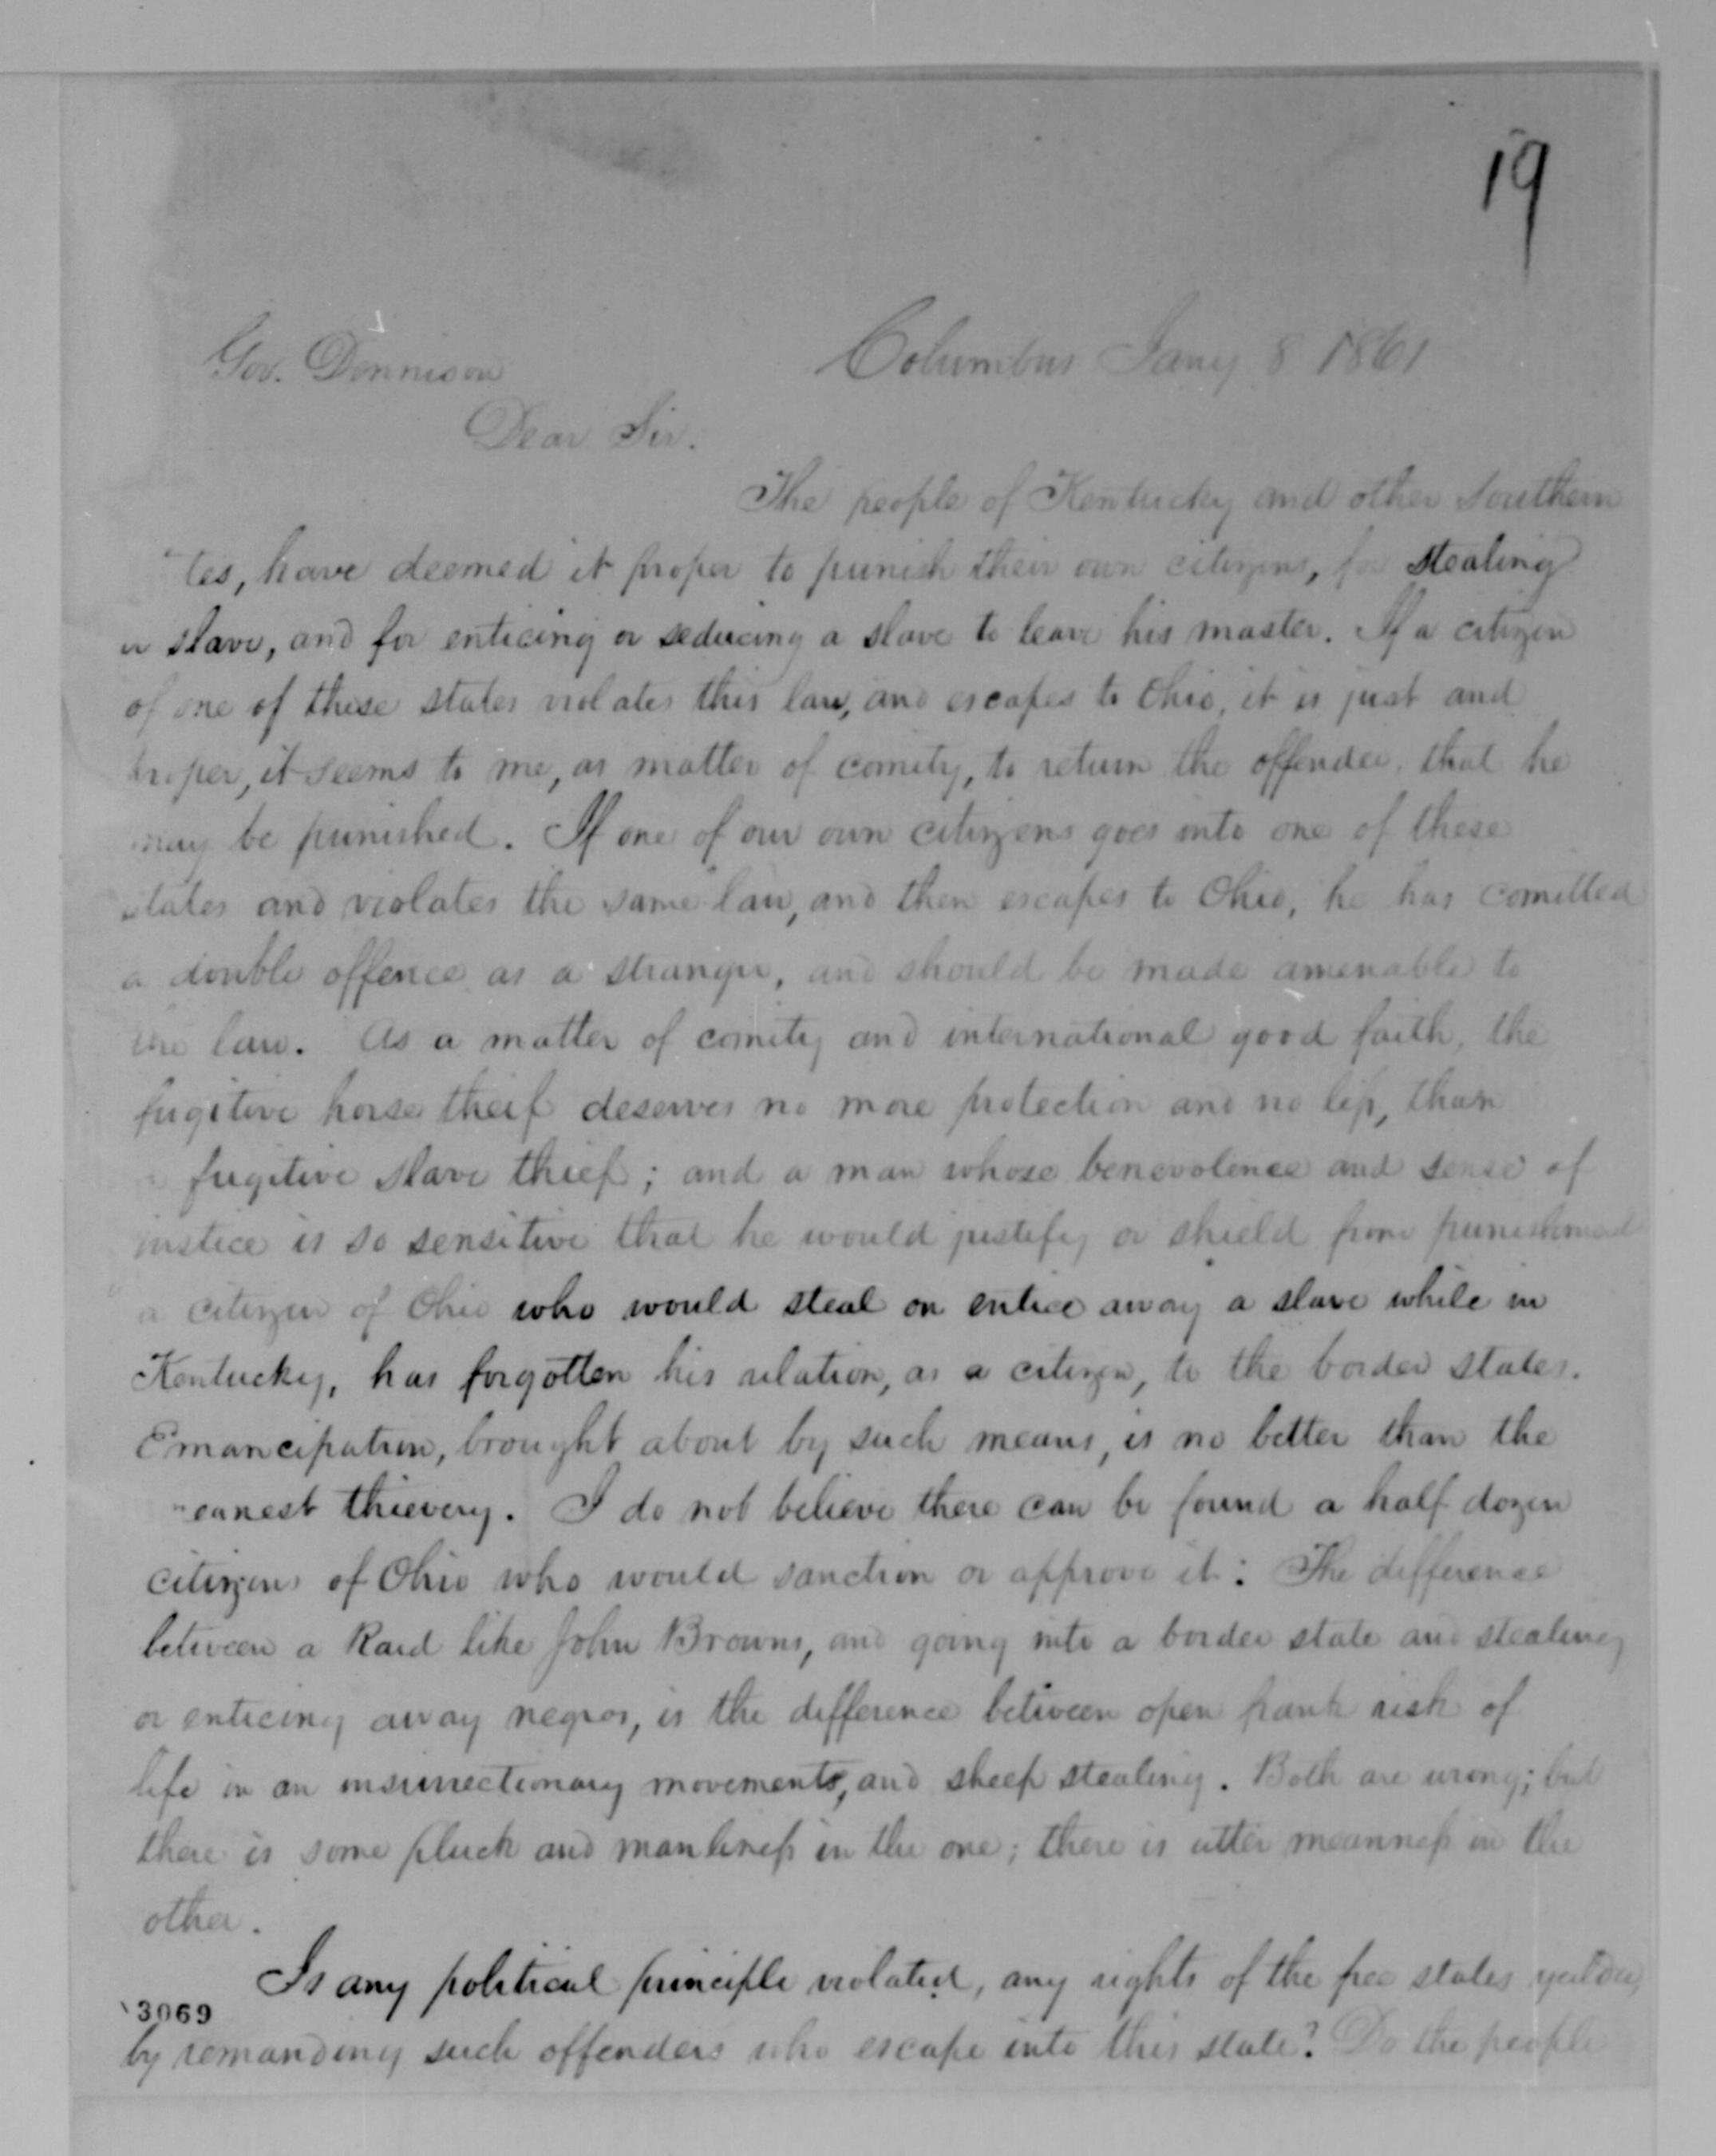 19
Columbus Jany 8 1861
Gov. Dennison
Dear Sir.
The people of Kentucky and other Southern
tes, have deemed it proper to punish their own citizens, for stealing
a slave, and for enticing or seducing a slave to leave his master. If a citizen
of one of these states violates this law, and escapes to Ohio, it is just and
proper, it seems to me, as matter of comity, to return the offender, that he
may be punished. If one of our own citizens goes into one of these
states and violates the same law, and then escapes to Ohio, he has comitted
a double offence as a stranger, and should be made amenable to
the law. As a matter of comity and international good faith, the
fugitive horse theif deserves no more protection and no less, than
a fugitive slave thief; and a man whose benevolence and sense of
justice is so sensitive that he would justify or shield from punishment
a citizen of Ohio who would steal or entice away a slave while in
Kentucky, has forgotten his relation, as a citizen, to the border states.
Emancipation, brought about by such means, is no better than the
eanest thievery. I do not believe there can be found a half dozen
citizens of Ohio who would sanction or approve it: The difference
between a Raid like John Browns, and going into a border state and stealing
or enticing away negros, is the difference between open frank risk of
life in an insurrectionary movement, and sheep stealing. Both are wrong; but
there is some pluck and manliness in the one; there is utter meanness in the
other.
Is any political principle violated, any rights of the free states
3069
by remanding such offenders who escape into this state? Do the people